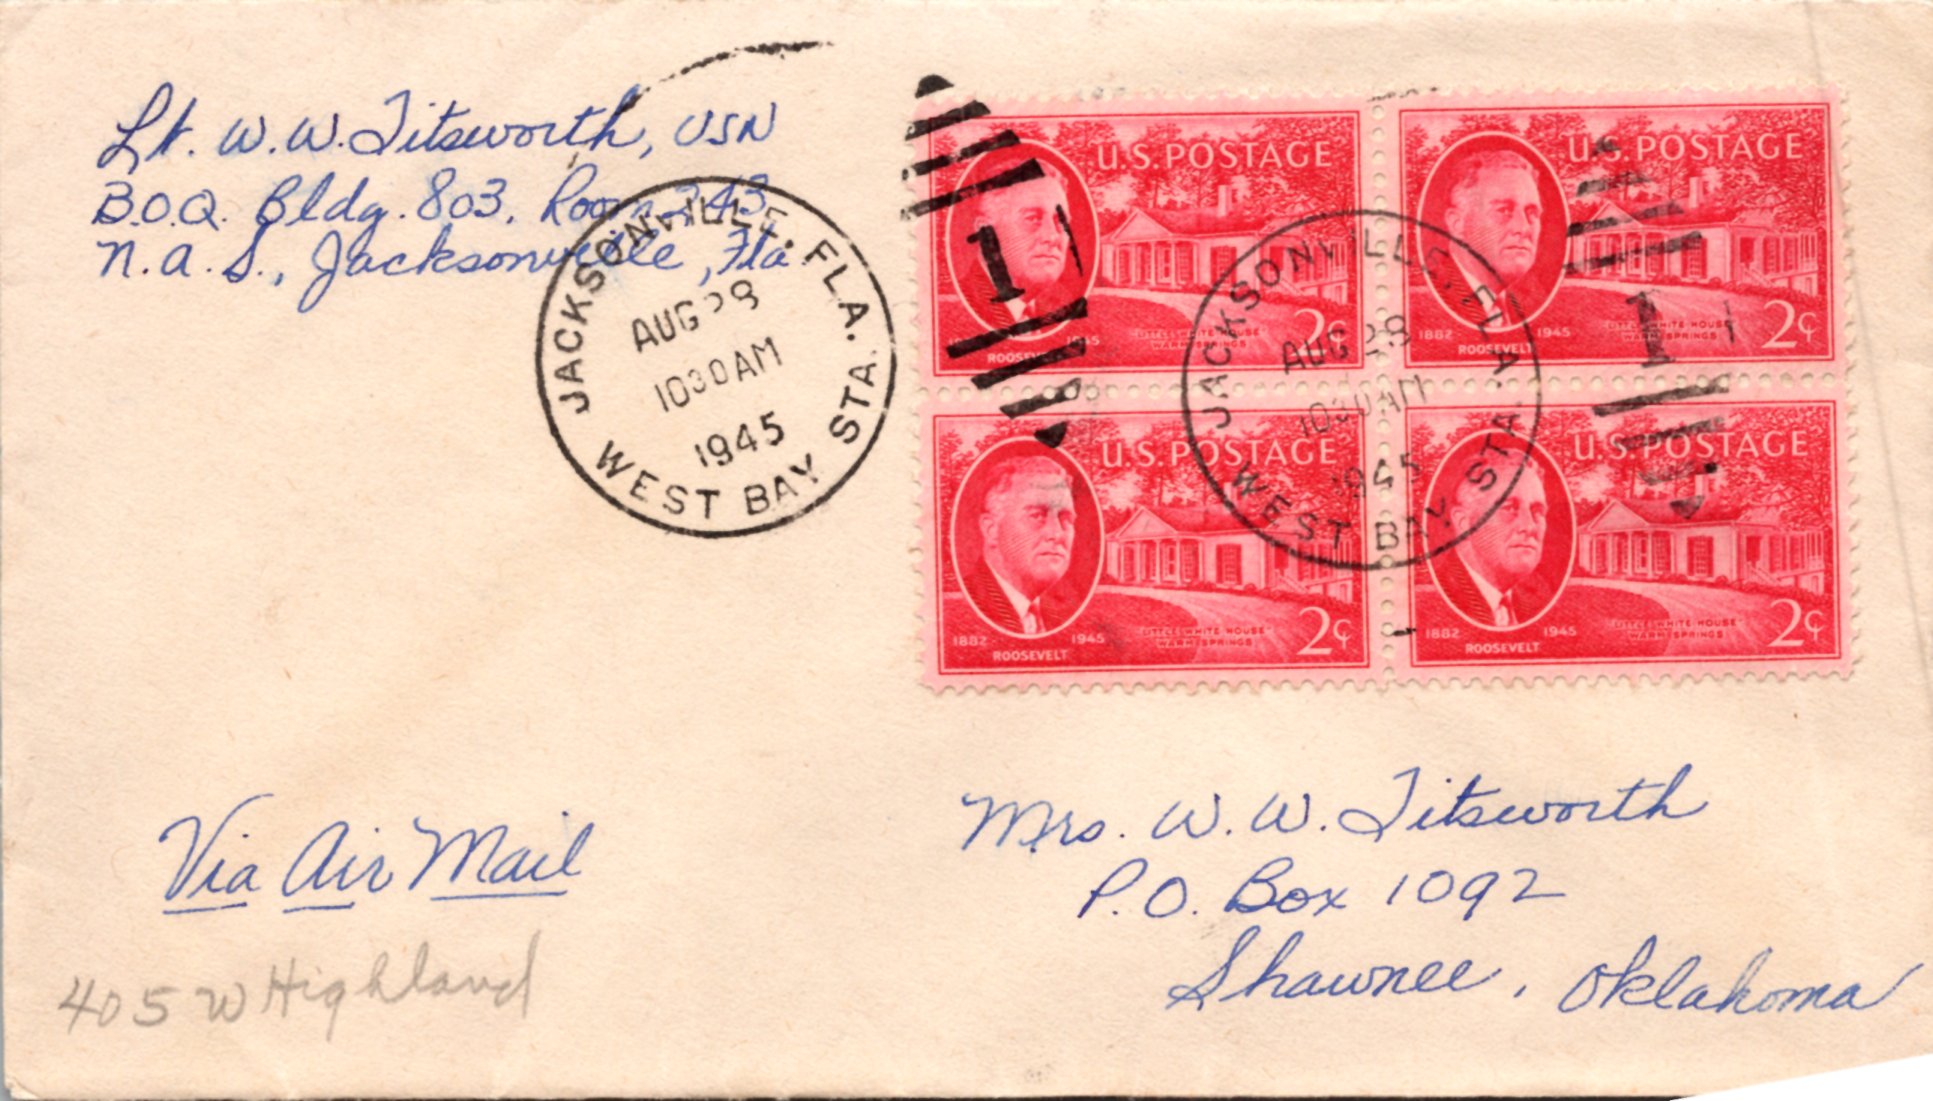 Lt. W. W. Titsworth, USN
B.O.Q. Bldg. 803, Room 343
N.A.S., Jacksonville, Fla.
JACKSONVILLE, FLA.
AUG 28
1030 AM
1945
WEST BAY STA.
1
U.S. POSTAGE
1945
ROOSEVELT
"LITTLE WHITE HOUSE"
WARM SPRINGS
2¢
U.S. POSTAGE
1882 1945
ROOSEVELT
LITTLE WHITE HOUSE
WARM SPRINGS
2¢
1
JACKSONVILLE, FLA.
AUG 28
1030 AM
1945
WEST BAY STA.
U.S. POSTAGE
1882 1945
ROOSEVELT
"LITTLE WHITE HOUSE"
WARM SPRINGS
2¢
U.S. POSTAGE
1882 1945
ROOSEVELT
"LITTLE WHITE HOUSE"
WARM SPRINGS
2¢
Via Air Mail
Mrs. W. W. Titsworth
P.O. Box 1092
Shawnee, Oklahoma
405 W Highland